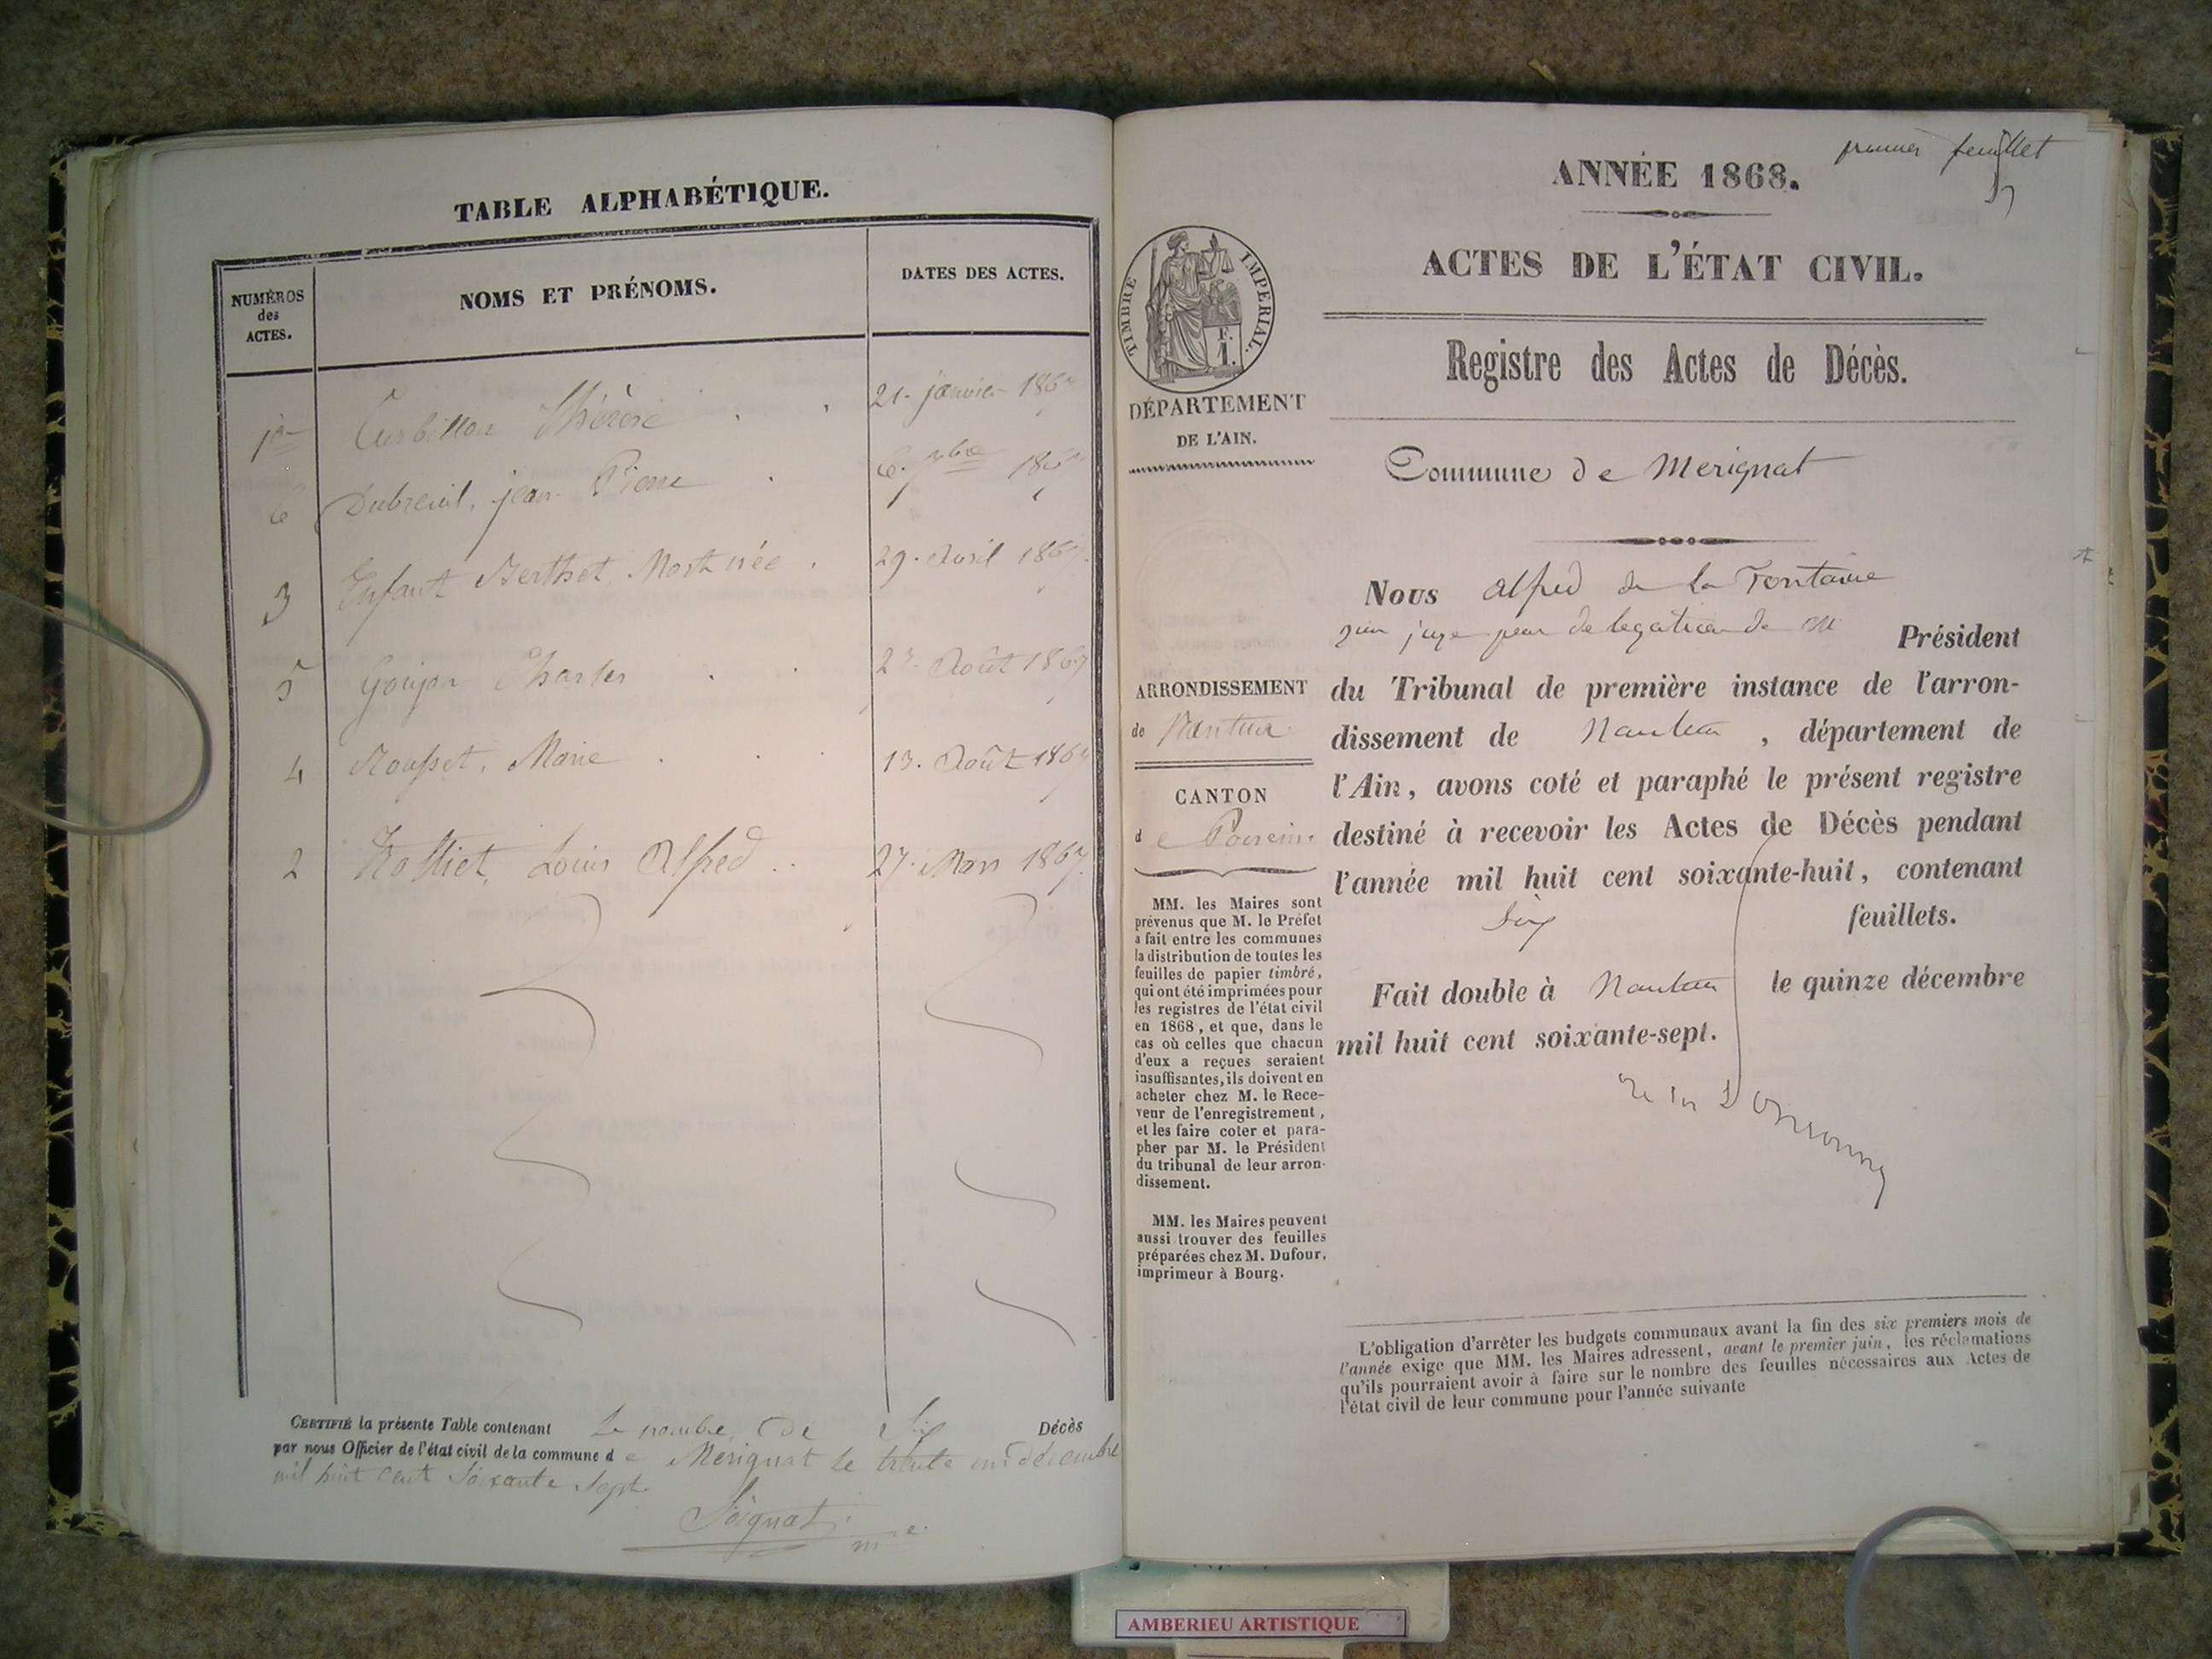 TABLE ALPHABÉTIQUE.
NUMÉROS
des
ACTES.
NOMS ET PRÉNOMS.
DATES DES ACTES.
1er Curbillon Thérèse 21. janvier 1867
6 Dubreuil, jean Pierre 6. 9bre 1867
3 Enfant Berthet Mort née 29. Avril 1867
5 Goujon Charles 27. Août 1867
4 Rousset, Marie 13. Août 1867
2 Louis Alfred 27. Mars 1867
CERTIFIÉ la présente Table contenant Le nombre de Six Décès
par nous Officier de l'état civil de la commune de Merignat le trente un décembre
mil huit cent soixante sept.
premier feuillet
ANNÉE 1868.
ACTES DE L'ÉTAT CIVIL.
Registre des Actes de Décès.
Commune de Merignat
TIMBRE IMPERIAL.
F.
1.
DÉPARTEMENT
DE L'AIN.
ARRONDISSEMENT
de Nantua
CANTON
de Poncin
MM. les Maires sont
prévenus que M. le Préfet
a fait entre les communes
la distribution de toutes les
feuilles de papier timbré,
qui ont été imprimées pour
les registres de l'état civil
en 1868, et que, dans le
cas où celles que chacun
d'eux a reçues seraient
insuffisantes, ils doivent en
acheter chez M. le Rece-
veur de l'enregistrement,
et les faire coter et para-
pher par M. le Président
du tribunal de leur arron-
dissement.
MM. les Maires peuvent
aussi trouver des feuilles
préparées chez M. Dufour,
imprimeur à Bourg.
Nous alfred de La Fontaine
juge par delegation de M Président
du Tribunal de première instance de l'arron-
dissement de Nantua , département de
l'Ain, avons coté et paraphé le présent registre
destiné à recevoir les Actes de Décès pendant
l'année mil huit cent soixante-huit, contenant
Six feuillets.
Fait double à Nantua le quinze décembre
mil huit cent soixante-sept.
L'obligation d'arrêter les budgets communaux avant la fin des six premiers mois de
l'année exige que MM. les Maires adressent, avant le premier juin, les réclamations
qu'ils pourraient avoir à faire sur le nombre des feuilles nécessaires aux Actes de
l'état civil de leur commune pour l'année suivante
AMBERIEU ARTISTIQUE